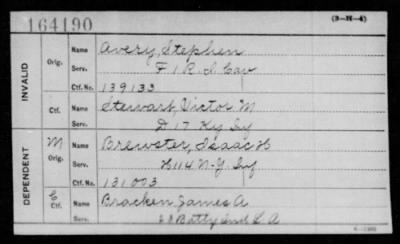 164190
(3-H-4)
INVALID
Orig.
Name Avery, Stephen
Serv. F 1 R. I. Cav
Ctf. No. 139133
Ctf.
Name Stewart, Victor M
Serv. D 17 Ky Inf
DEPENDENT
M
Orig.
Name Brewster, Isaac H
Serv. H 114 N-Y Inf
Ctf. No. 131003
C
Ctf.
Name Bracken, James A
Serv. 20 Batty Ind L A